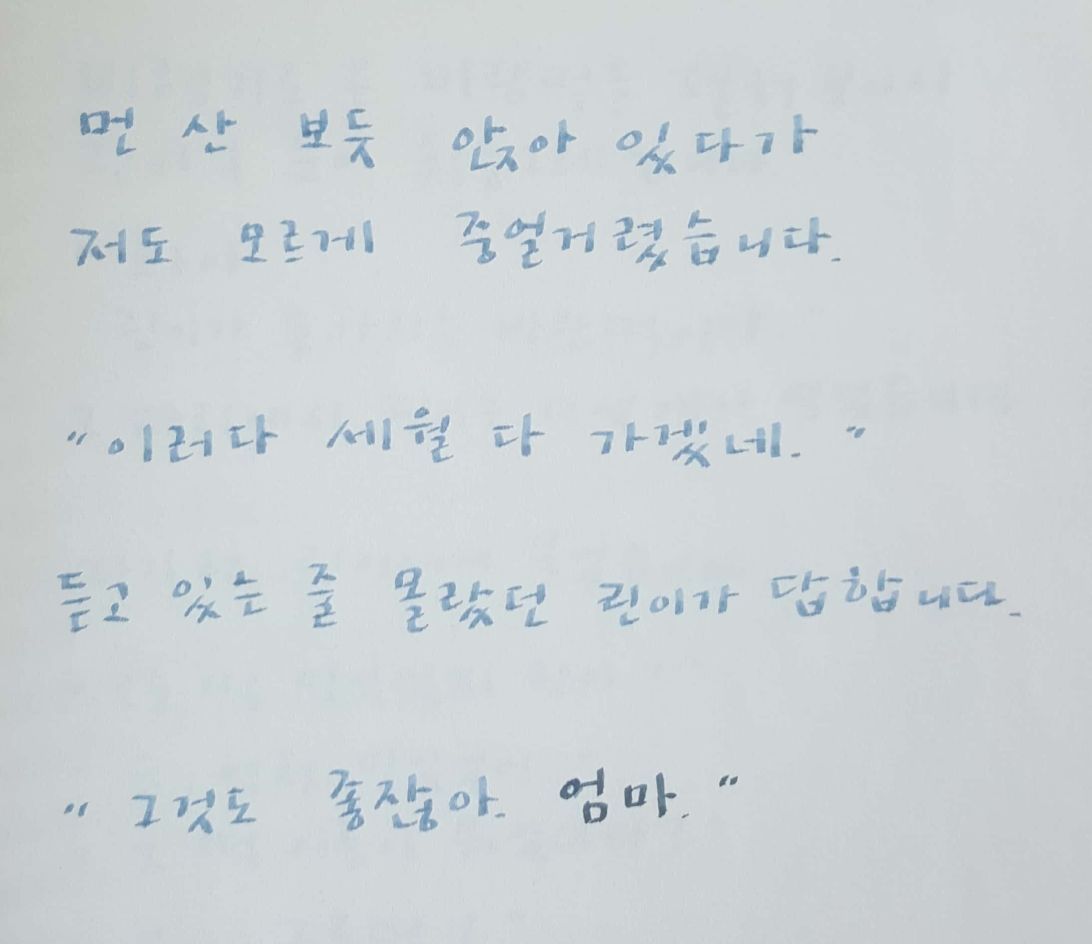 먼 산 보듯 앉아 있다가
저도 모르게 중얼거렸습니다.
"이러다 세월 다 가겠네."
듣고 있는 줄 몰랐던 린이가 답합니다.
"그것도 좋잖아. 엄마."